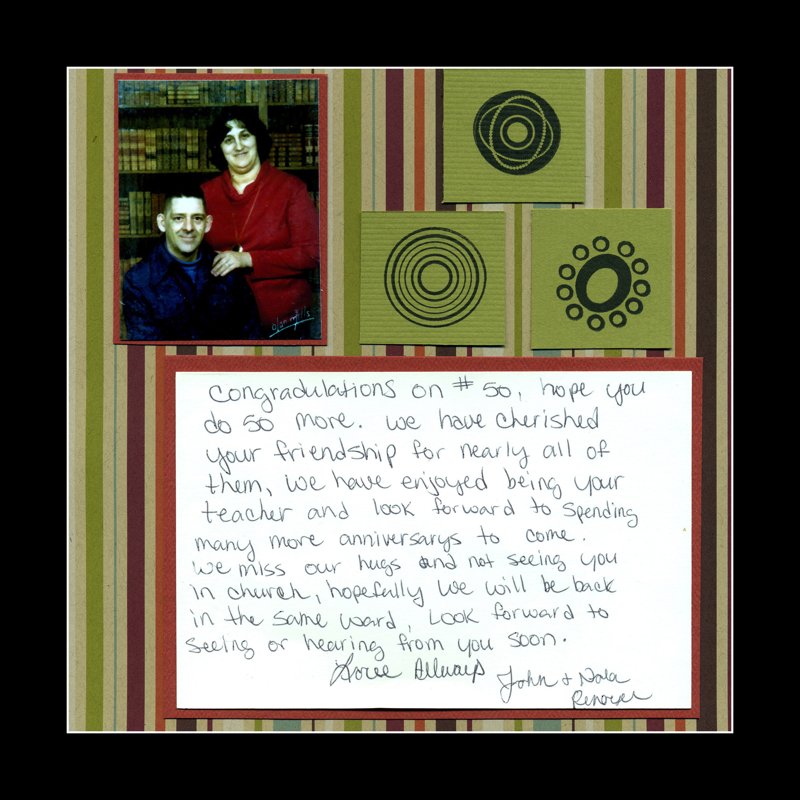 olan mills
congradulations on #50, hope you
do 50 more. we have cherished
your friendship for nearly all of
them, we have enjoyed being your
teacher and look forward to spending
many more anniversarys to come.
we miss our hugs and not seeing you
in church, hopefully we will be back
in the same ward, Look forward to
seeing or hearing from you soon.
Love Allways
John + Nola